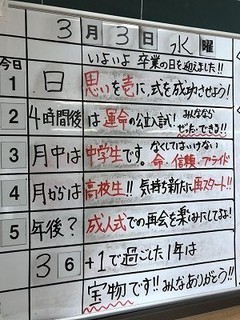 3月3日 水曜
いよいよ卒業の日を迎えました!!
今日
1 日 思いを壱に、式を成功させよう!
2 4時間後は 運命の公立入試! みんななら ぜったいできる!!
3 月中は 中学生です。なくしてはいけない 命・信頼・プライド
4 月からは 高校生!! 気持ち新たに再スタート!!
5 年後? 成人式での再会を楽しみにしてるよ!
36+1で過ごした1年は
宝物です!!みんなありがとう!!